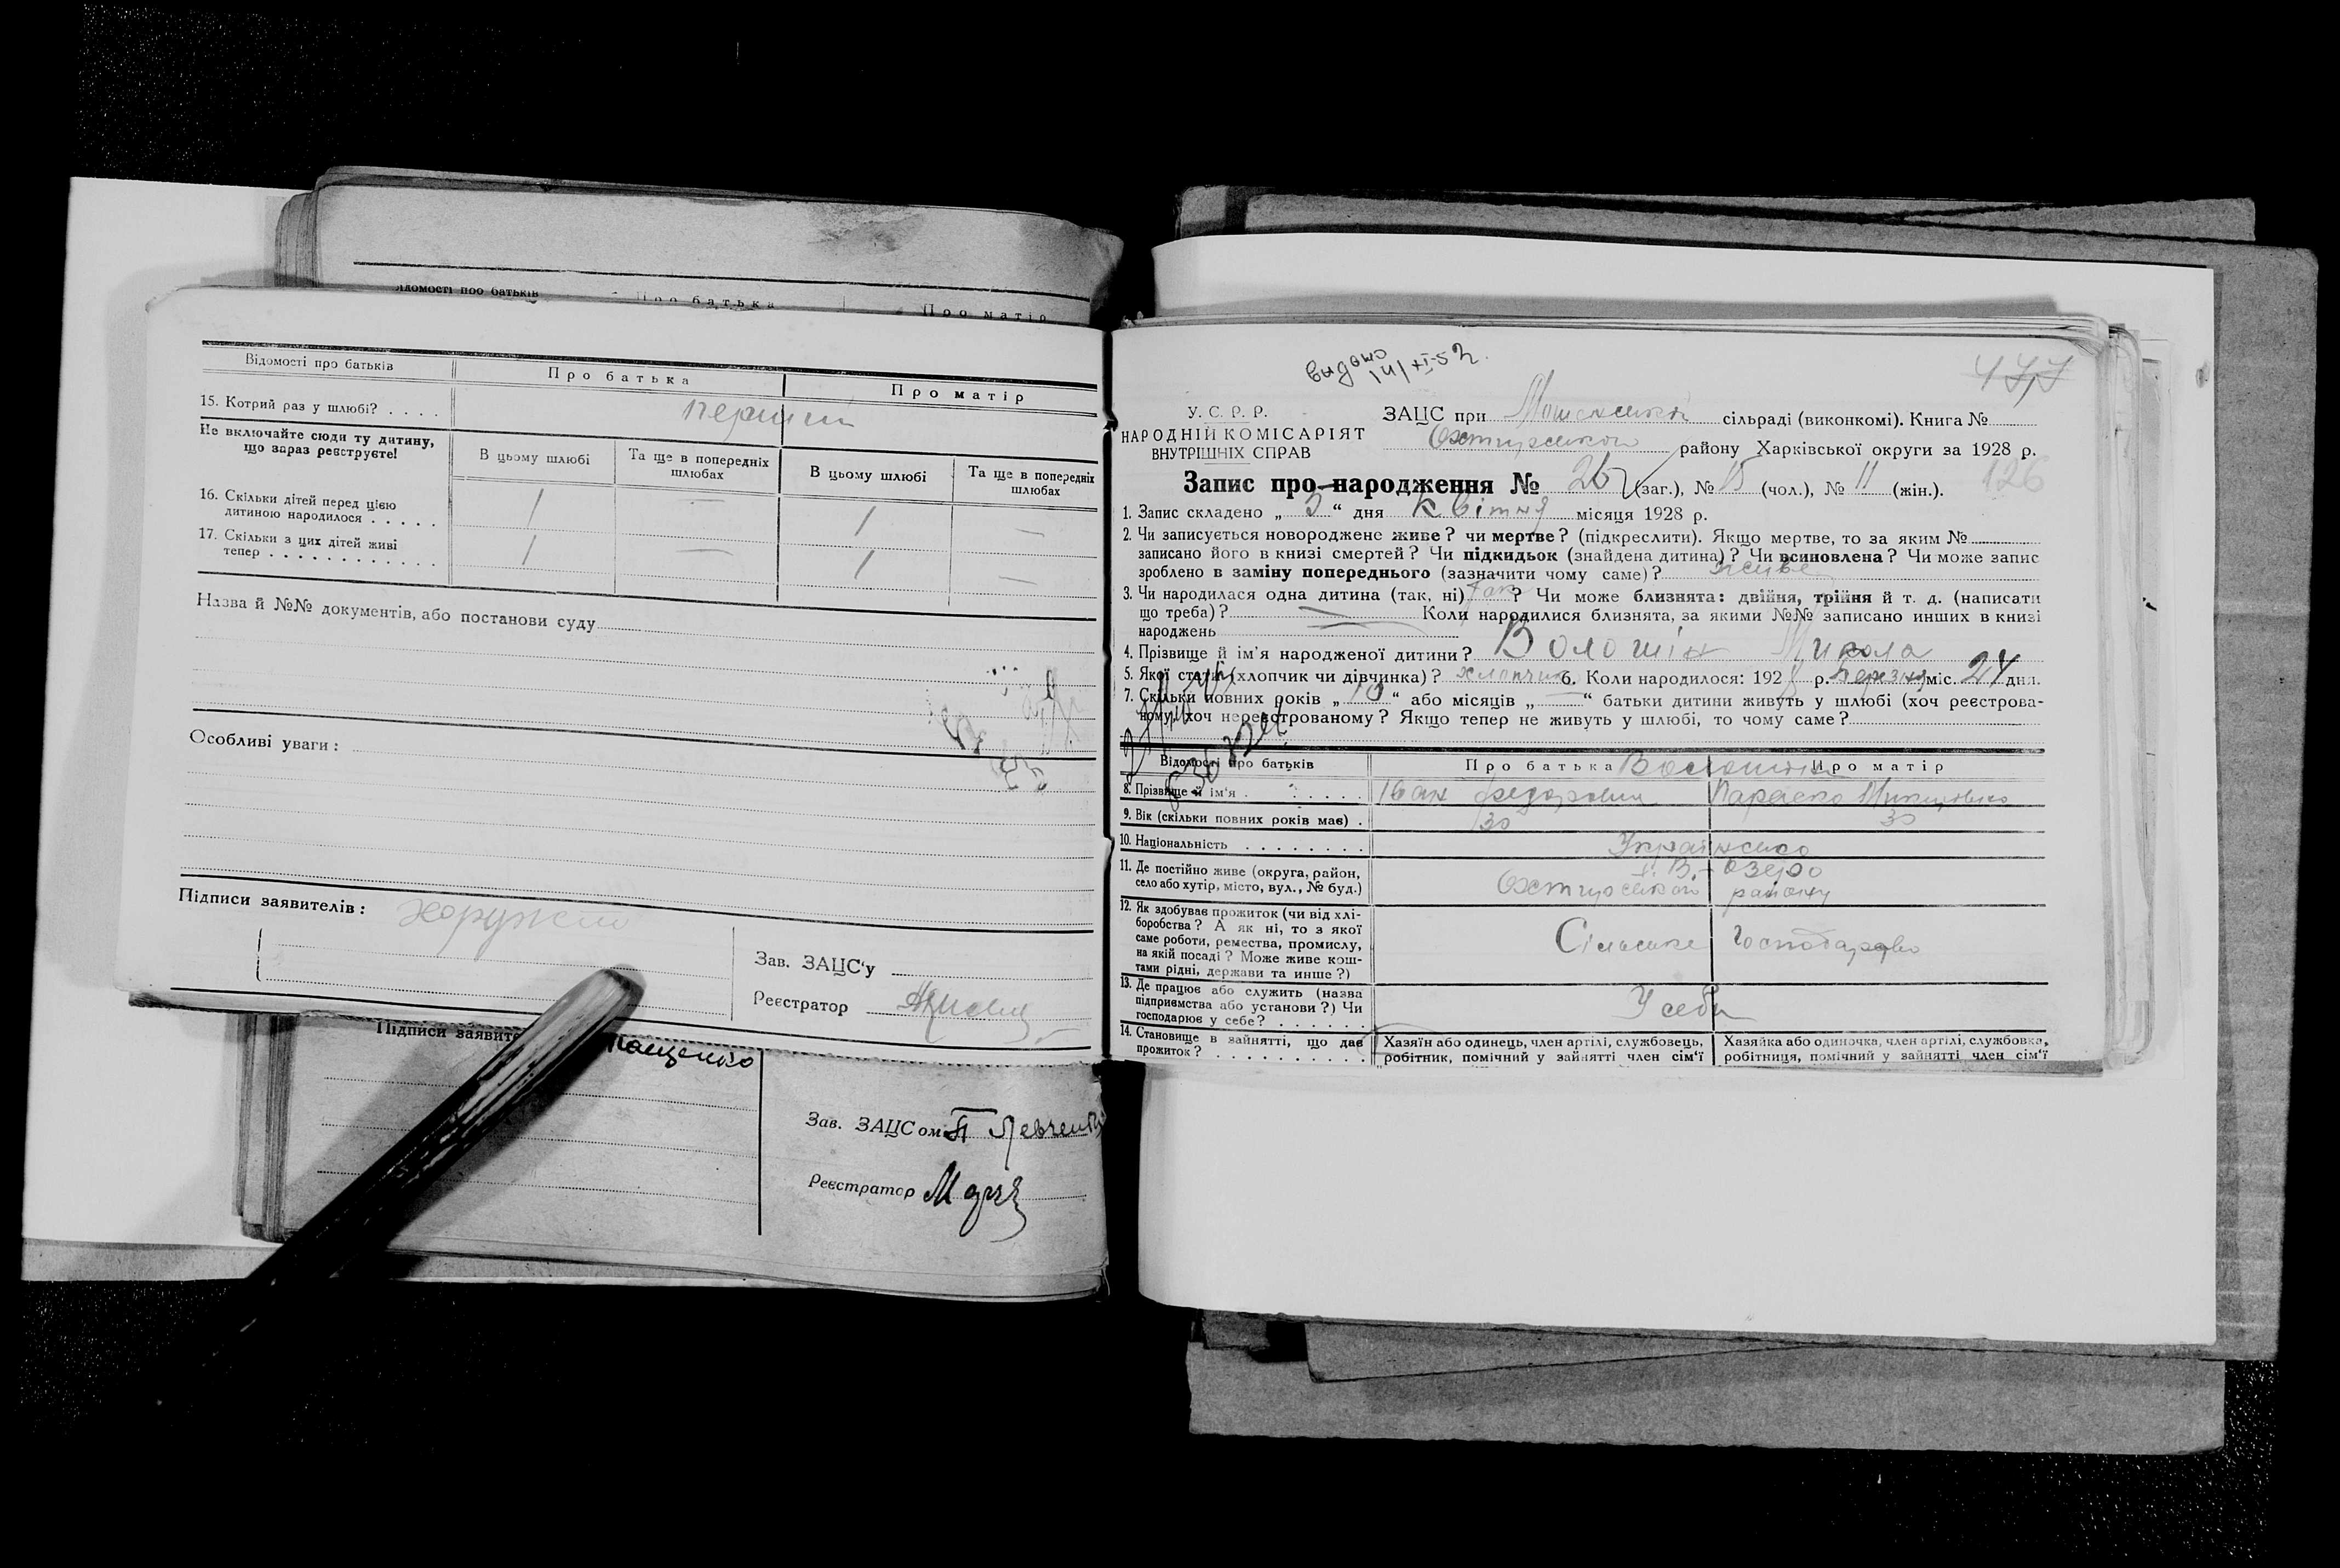 Відомості про батьків
Про батька
Про матір
15. Котрий раз у шлюбі? . . . .
перший
Не включайте сюди ту дитину, що зараз реєструєте!
В цьому шлюбі
Та ще в попередніх шлюбах
В цьому шлюбі
Та ще в попередніх шлюбах
16. Скільки дітей перед цією
дитиною народилося . . . . .
1 — 1 —
17. Скільки з цих дітей живі
тепер . . . . . . . . . . . .
1 — 1 —
Назва й №№ документів, або постанови суду
Особливі уваги :
Підписи заявителів :
Зав. ЗАЦС'у
Реєстратор
Підписи заявите
Зав. ЗАЦСом П Левчен
Реєстратор
видано
14/XI-52.
У. С. Р. Р.
НАРОДНІЙ КОМІСАРІЯТ
ВНУТРІШНІХ СПРАВ
ЗАЦС при сільраді (виконкомі). Книга №
Охтирського району Харківської округи за 1928 р.
126
Запис про народження № 26 (заг.), № 15 (чол.), № 11 (жін.).
1. Запис складено „ 5 “ дня Квітня місяця 1928 р.
2. Чи записується новороджене живе? чи мертве? (підкреслити). Якщо мертве, то за яким №
записано його в книзі смертей? Чи підкидьок (знайдена дитина)? Чи всиновлена? Чи може запис
зроблено в заміну попереднього (зазначити чому саме)? живе
3. Чи народилася одна дитина (так, ні) так? Чи може близнята: двійня, трійня й т. д. (написати
що треба)? — Коли народилися близнята, за якими №№ записано инших в книзі
народжень
4. Прізвище й ім'я народженої дитини? Волошін Микола
5. Якої статі (хлопчик чи дівчинка)? хлопчик 6. Коли народилося: 1928 р. березня міс. 24 дня.
7. Скільки повних років „ 10 “ або місяців „ — “ батьки дитини живуть у шлюбі (хоч реєстрова-
ному, хоч нереєстрованому? Якщо тепер не живуть у шлюбі, то чому саме?
Відомості про батьків
Про батька
Про матір
8. Прізвище й ім'я . . . . . .
Іван Федорович
Параска
9. Вік (скільки повних років має) .
30
30
10. Національність . . . . . . . .
Українська
11. Де постійно живе (округа, район,
село або хутір, місто, вул., № буд.)
В.-озеро
Охтирського району
12. Як здобуває прожиток (чи від хлі-
боробства? А як ні, то з якої
саме роботи, ремества, промислу,
на якій посаді? Може живе кош-
тами рідні, держави та инше?)
Сільське Господарство
13. Де працює або служить (назва
підприємства або установи?) Чи
господарює у себе? . . . . . .
У себе
14. Становище в зайнятті, що дає
прожиток? . . . . . . . . . .
Хазяїн або одинець, член артілі, службовець,
робітник, помічний у зайнятті член сім'ї
Хазяйка або одиночка, член артілі, службовка,
робітниця, помічний у зайнятті член сім'ї